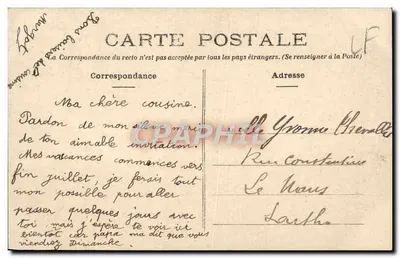 Bons baisers de ta cousine
Margot
CARTE POSTALE
LF
La Correspondance au recto n'est pas acceptée par tous les pays étrangers. (Se renseigner à la Poste)
Correspondance
Adresse
Ma chère cousine.
Pardon de mon
de ton aimable invitation.
Mes vacances commences vers
fin juillet, je ferais tout
mon possible pour aller
passer quelques jours avec
toi mais j'espère te voir ici
bientot car papa m'a dit que vous
viendrez Dimanche.
CARTHAPHILIE
elle Yvonne Chevallier
Rue Constantine
Le Mans
Sarthe